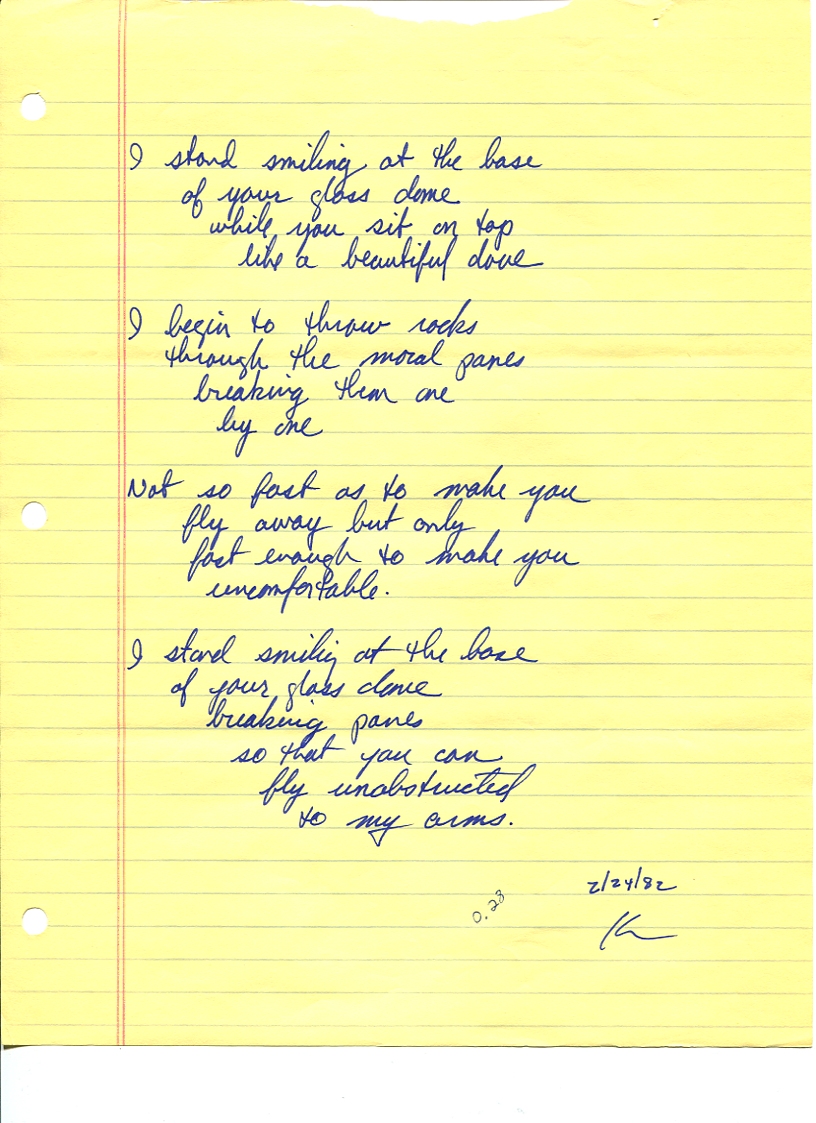 I stand smiling at the base
of your glass dome
while you sit on top
like a beautiful dove
I begin to throw rocks
through the moral panes
breaking them one
by one
Not so fast as to make you
fly away but only
fast enough to make you
uncomfortable.
I stand smilig at the base
of your glass dome
breaking panes
so that you can
fly unobstructed
to my arms.
2/24/82
0.28